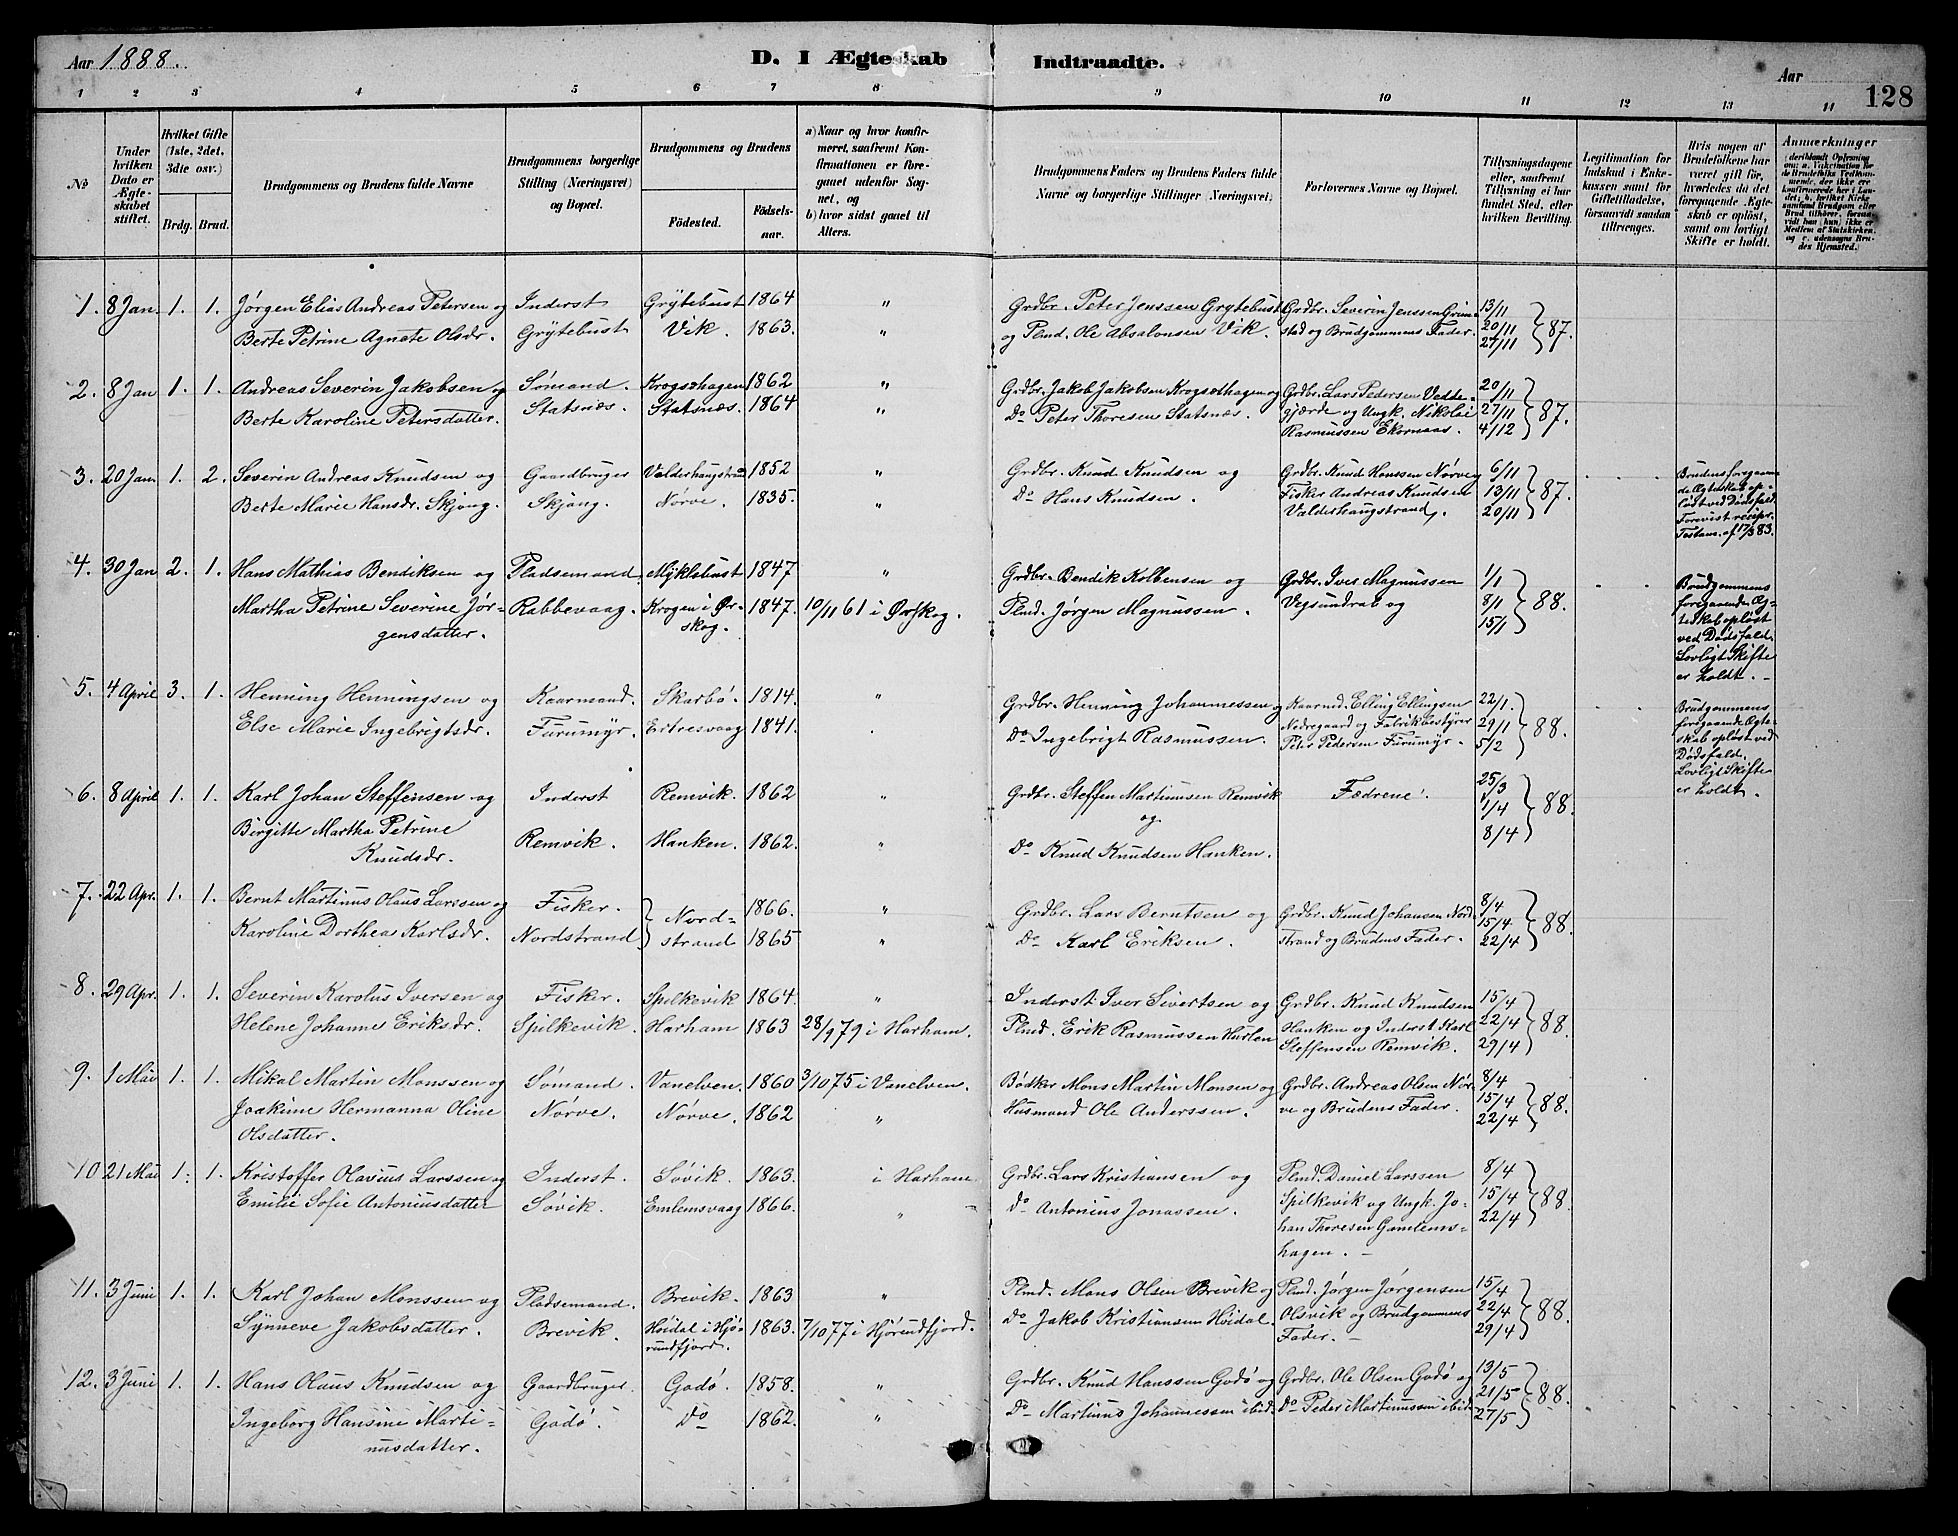 Aar 1888.
D. I Ægteskab Indtraadte.
Aar
128
1 2 3 4 5 6 7 8 9 10 11 12 13 14
No
Under hvilken Dato er Ægteskabet stiftet.
Hvilket Gifte (1ste, 2det, 3die osv.)
Brdg. Brud.
Brudgommens og Brudens fulde Navne
Brudgommens borgerlige Stilling (Næringsvei) og Bopæl.
Brudgommens og Brudens
Fødested. Fødselsaar.
a) Naar og hvor konfirmeret, saafremt Konfirmationen er foregaaet udenfor Sognet, og
b) hvor sidst gaaet til Alters.
Brudgommens Faders og Brudens Faders fulde Navne og borgerlige Stillinger (Næringsvei).
Forlovernes Navne og Bopæl.
Tillysningsdagene eller, saafremt Tillysning ei har fundet Sted, efter hvilken Bevilling.
Legitimation for Indskud i Enkekassen samt for Giftetilladelse, forsaavidt saadan tiltrænges.
Hvis nogen af Brudefolkene har været gift før, hvorledes da det foregaaende Ægteskab er opløst, samt om lovligt Skifte er holdt.
Anmærkninger
1. 8 Jan. 1. 1. Jørgen Elias Andreas Petersen og Inderst Grytebust 1864 " Grdbr. Peter Jenssen Grytebust Grdbr. Severin Jenssen Grim- 13/11
Berte Petrine Agnate Olsdr. Grytebust Vik. 1863. " og Plmd. Ole Absalonsen Vik. stad og Brudgommens Fader. 20/11 87.
27/11
2. 8 Jan 1. 1. Andreas Severin Jakobsen og Sømand. Krogsthagen 1862 " Grdbr. Jakob Jakobsen Krogsthagen og Grdbr. Lars Pedersen Vedde- 20/11
Berte Karoline Petersdatter. Statsnæs. Statsnæs. 1864 " Do Peter Thoresen Statsnæs. gjærde og Ungk. Nikolai 27/11 87.
Rasmussen Ekornaas. 4/12
3. 20 Jan 1. 2. Severin Andreas Knudsen og Gaardbruger Valderhaugstrand 1852 " Grdbr. Knud Knudsen og Grdbr. Knud Hanssen Nørve og 6/11
Berte Marie Hansdr. Skjong. Skjong. Nørve. 1835. " Do Hans Knudsen. Fisker Andreas Knudsen 13/11 87.
Valderhaugstrand. 20/11
Brudens foregaaen-
de Ægteskab op-
løst ved Dødsfald.
Forevist recipr.
Testam. af 17/3 83.
4. 30 Jan 2. 1. Hans Mathias Bendiksen og Pladsemand Myklebust 1847 " Grdbr. Bendik Kolbensen og Grdbr. Iver Magnussen 1/1
Martha Petrine Severine Jør- Rabbevaag. Krogen i Ør- 1847. 10/11 61 i Ørskog. Plmd. Jørgen Magnussen. Vejsundrab og 8/1 88.
gensdatter. skog. 15/1
Brudgommens
foregaaende Æg-
teskab opløst
ved Dødsfald.
Lovligt Skifte
er holdt. -
5. 4 April 3. 1. Henning Henningsen og Kaarmand. Skarbø. 1814 " Grdbr. Henning Johannessen og Kaarmd. Elling Ellingsen 22/1.
Else Marie Ingebrigtsdr. Furumyr. Ertresvaag 1841. Do Ingebrigt Rasmussen. Nedregaard og Fabrikbestyrer 29/1 88.
Peter Pedersen Furumyr. 5/2
Brudgommens
foregaaende Ægte-
skab opløst ved
Dødsfald.
Lovligt Skifte
er holdt.
6. 8 April 1. 1. Karl Johan Steffensen og Inderst Remvik. 1862 " Grdbr. Steffen Martinusen Remvik Fædrene. 25/3
Birgitte Martha Petrine og 1/4 88.
Knudsdr. Remvik. Hanken. 1862. " Do Knud Knudsen Hanken. 8/4
7. 22 Apr. 1. 1. Bernt Martinus Olaus Larssen og Fisker. Nord- 1866. " Grdbr. Lars Berntsen og Grdbr. Knud Johansen Nord- 8/4
Karoline Dorthea Karlsdr. Nordstrand strand 1865 " Do Karl Eriksen. strand og Brudens Fader. 15/4 88.
22/4
8. 29 Apr. 1. 1. Severin Karolus Iversen og Fisker. Spilkevik 1864. " Inderst Iver Sivertsen og Grdbr. Knud Knudsen 15/4
Helene Johanne Eriksdr. Spilkevik. Harham 1863 28/9 79 i Harham. Plmd. Erik Rasmussen Hurlen Hanken og Inderst Karl 22/4 88.
Steffensen Remvik. 29/4
9. 1 Mai 1. 1. Mikal Martin Monssen og Sømand. Vanelven. 1860 3/10 75 i Vanelven. Bødker Mons Martin Monsen og Grdbr. Andreas Olsen Nør- 8/4
Joakime Hermanna Oline Nørve. Nørve. 1862 " Husmand Ole Anderssen. ve og Brudens Fader. 15/4 88.
Olsdatter. 22/4
10 21 Mai 1. 1. Kristoffer Olavius Larssen og Inderst. Søvik. 1863. i Harham Grdbr. Lars Kristiansen og Plmd. Daniel Larssen 8/4
Emilie Sofie Antoniusdatter Søvik. Emlemsvaag 1866. " Do Antonius Jonassen. Spilkevik og Ungk. Jo- 15/4 88.
han Thoresen Gamlems- 22/4
hagen. -
11. 3 Juni 1. 1. Karl Johan Monssen og Pladsemand. Brevik. 1863 " Plmd. Mons Olsen Brevik og Plmd. Jørgen Jørgensen 15/4
Synneve Jakobsdatter. Brevik. Høidal i Hjø- 1863. 7/10 77 i Hjørundfjord. Do Jakob Kristiansen Høidal. Olsvik og Brudgommens 22/4 88.
rundfjord. Fader. - 29/4
12. 3 Juni 1. 1. Hans Olaus Knudsen og Gaardbruger. Godø. 1858. " Grdbr. Knud Hanssen Godø og Grdbr. Ole Olsen Godø og 13/5
Ingeborg Hansine Marti- Godø. Do 1862. " Do Martinus Johannessen ibid. Do Peder Martinussen ibid. 21/5 88.
nusdatter. 27/5